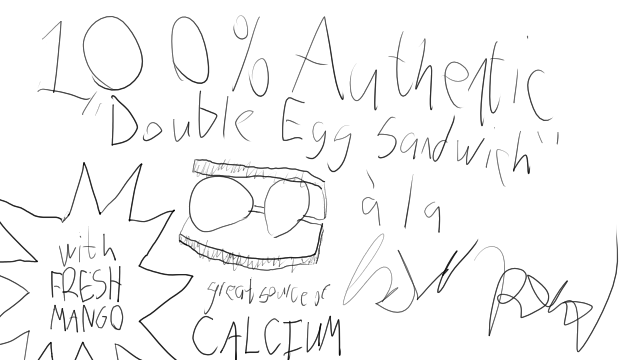 100% Authentic
"Double Egg Sandwich"
à la
with
FRESH
MANGO
great source of
CALCIUM